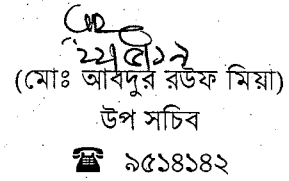 ২২/৫/১৯
(মোঃ আবদুর রউফ মিয়া)
উপ সচিব
☎ ৯৫১৪১৪২